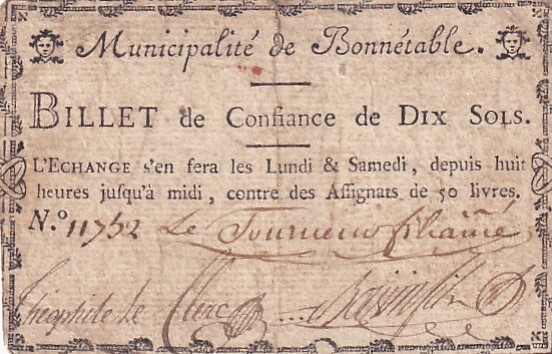 Municipalité de Bonnétable.
BILLET de Confiance de DIX SOLS.
L'ECHANGE s'en fera les Lundi & Samedi, depuis huit
heures jusqu'à midi, contre des Assignats de 50 livres.
N.o 11752 Le Tourneur fils aîné
Théophile Le Clerc